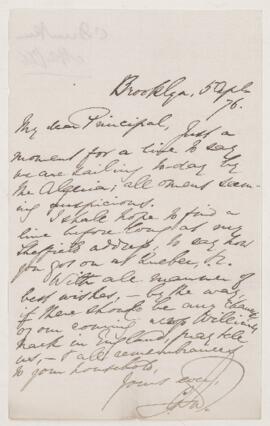 Brooklyn, 5 Sept
76.
My dear Principal, Just a
moment for a line to say
we are sailing to-day by
the Algeria; all omens seem-
ing auspicious.
I shall hope to find a
line before long at my
Sheffield address, to say how
you got on at Quebec,
With all manner of
best wishes, - by the way,
if there should be any chance
of our coming
back in England, pray tell
us, - & all remembrances
to your household,
Yours ever,